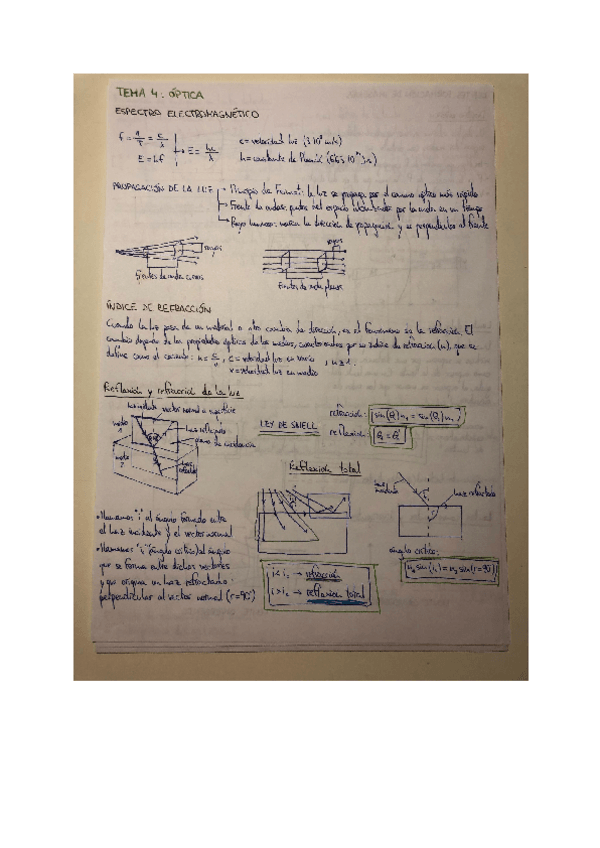 TEMA 4: ÓPTICA
ESPECTRO ELECTROMAGNÉTICO
f = 1/T = c/λ
E = h·f
→ E = hc/λ
c = velocidad luz (3·10⁸ m/s)
h = constante de Planck
PROPAGACIÓN DE LA LUZ
→ Principio de Fermat: la luz se propaga por el camino óptico más rápido
→ Frente de ondas: puntos del espacio alcanzados por la onda en un tiempo
→ Rayo luminoso: marca la dirección de propagación y es perpendicular al frente
rayos
rayos
Frentes de onda curvos
Frentes de onda planos
ÍNDICE DE REFRACCIÓN
Cuando la luz pasa de un material a otro cambia de dirección, es el fenómeno de la refracción. El
cambio depende de las propiedades ópticas de los medios, caracterizados por su índice de refracción (n), que se
define como el cociente: n = c/v, c = velocidad luz en vacío, n ≥ 1.
v = velocidad luz en medio
Reflexión y refracción de la luz
luz incidente
vector normal a superficie
luz reflejada
plano de incidencia
medio 1
medio 2
LEY DE SNELL
refracción:
reflexión:
Reflexión total
luz incidente
luz refractada
• Llamamos "i" al ángulo formado entre
el luz incidente y el vector normal
• Llamamos "ic" ángulo crítico al ángulo
que se forma entre dichos vectores
y que origina un luz refractado
perpendicular al vector normal (r=90°)
i < ic → refracción
i > ic → reflexión total
ángulo crítico:
n₁ sin(ic) = n₂ sin(r=90°)